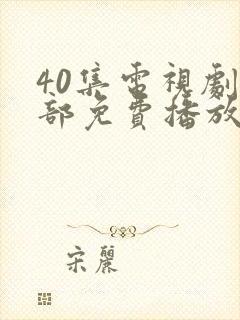 40集電視劇
部免費播放
宋麗